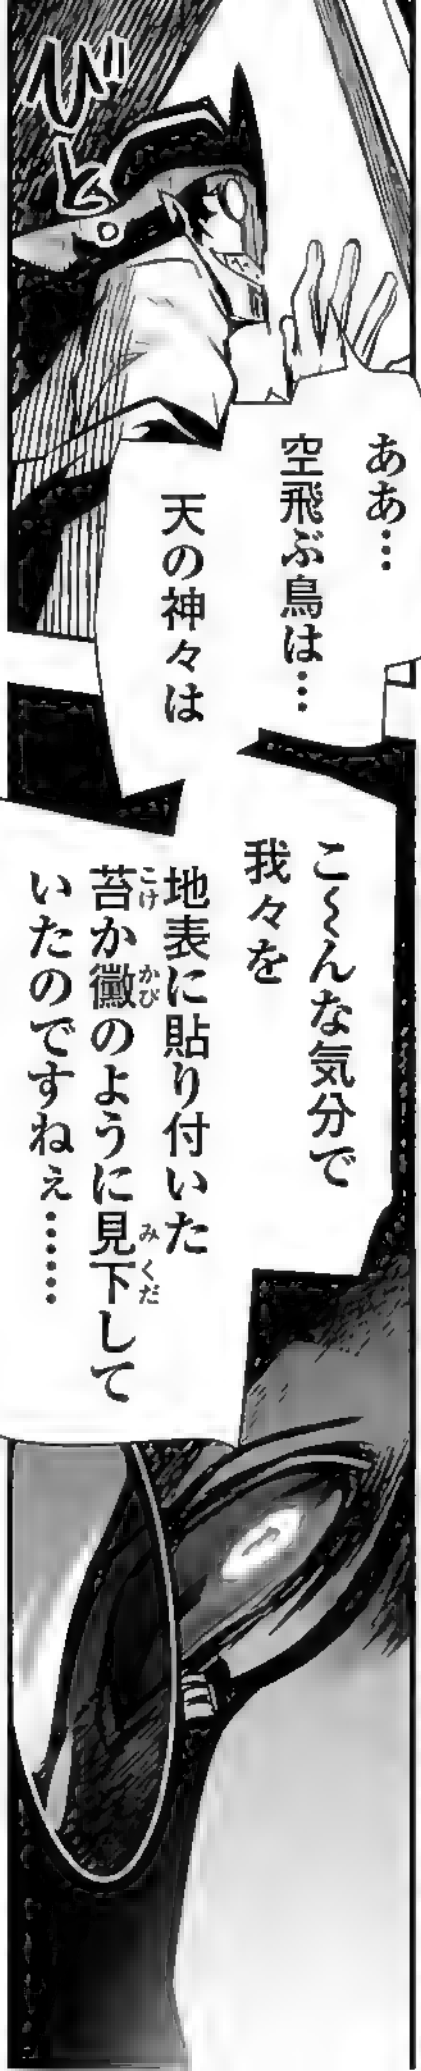 びと。
ああ…
空飛ぶ鳥は…
天の神々は
こ〜んな気分で
我々を
地表に貼り付いた
苔か黴のように見下して
いたのですねぇ……
こけ
かび
みくだ